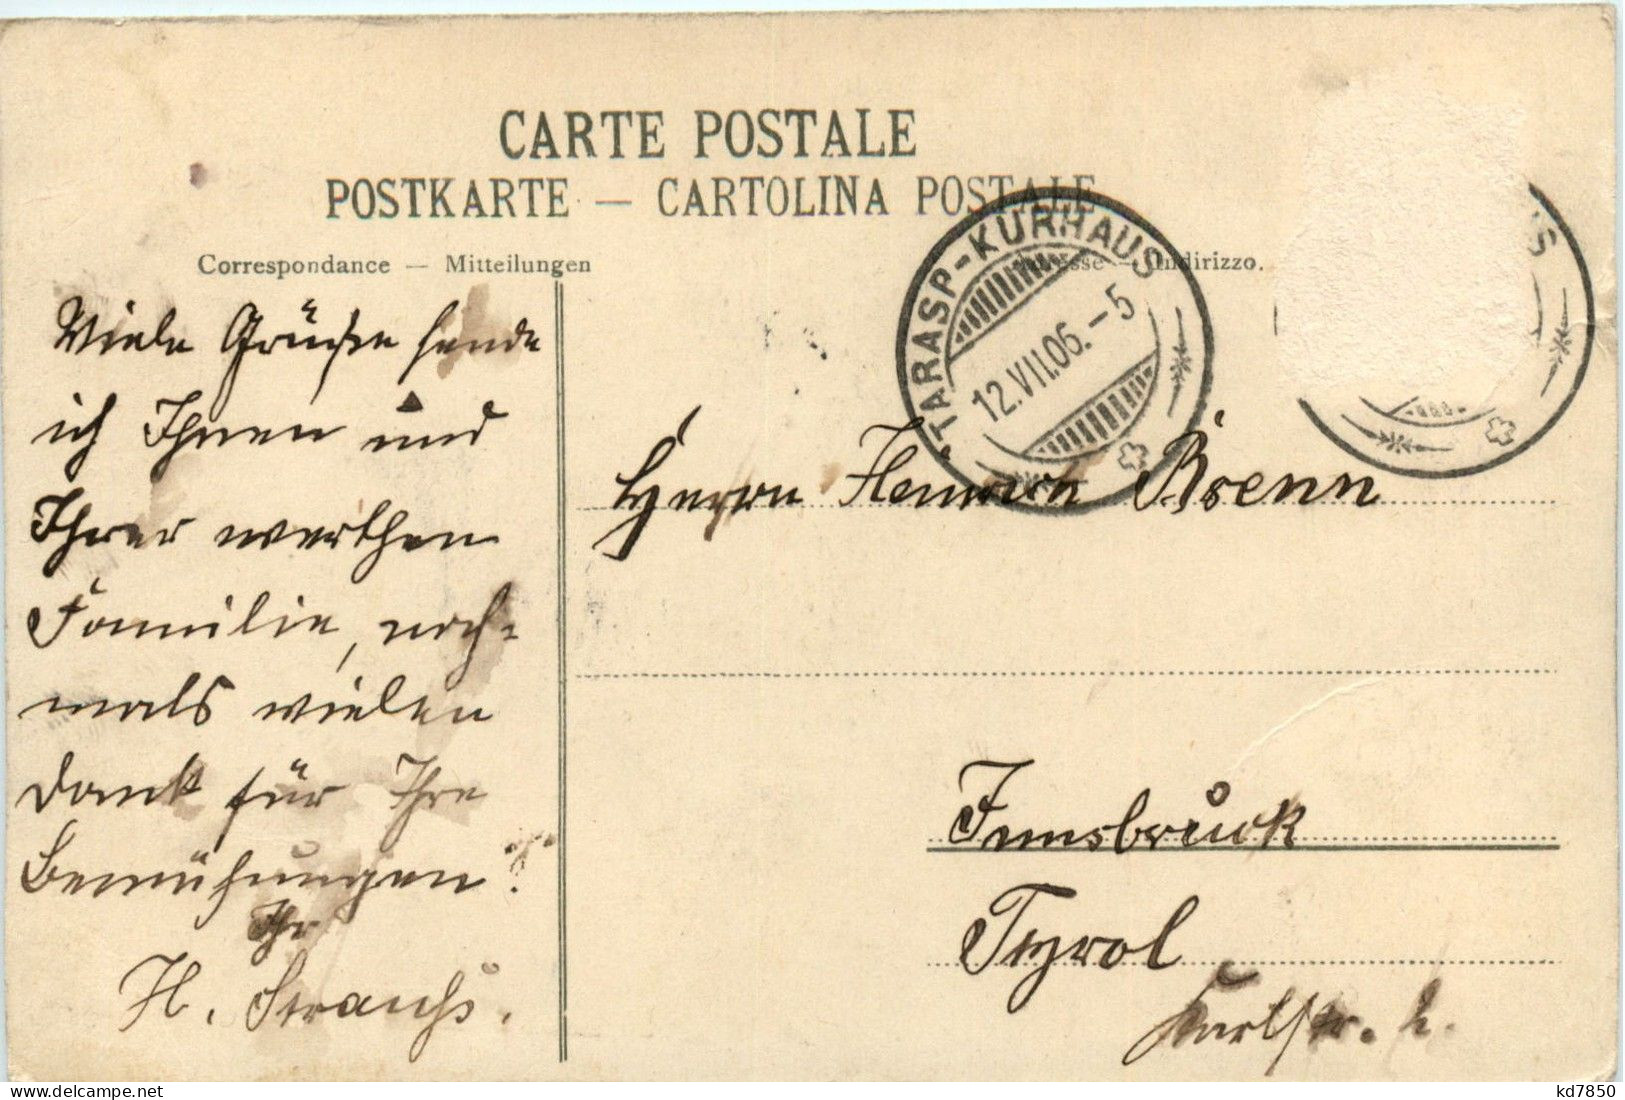 CARTE POSTALE
POSTKARTE — CARTOLINA POSTALE
Correspondance — Mitteilungen
Indirizzo.
TARASP-KURHAUS
12.VII.06.–5
S
Viele Grüße sende
ich Ihnen und
Ihrer werthen
Familie, noch-
mals vielen
Dank für Ihre
Bemühungen.
Ihr
H. Strauß.
Herrn Heinrich
Innsbruck
Tyrol
kd7850